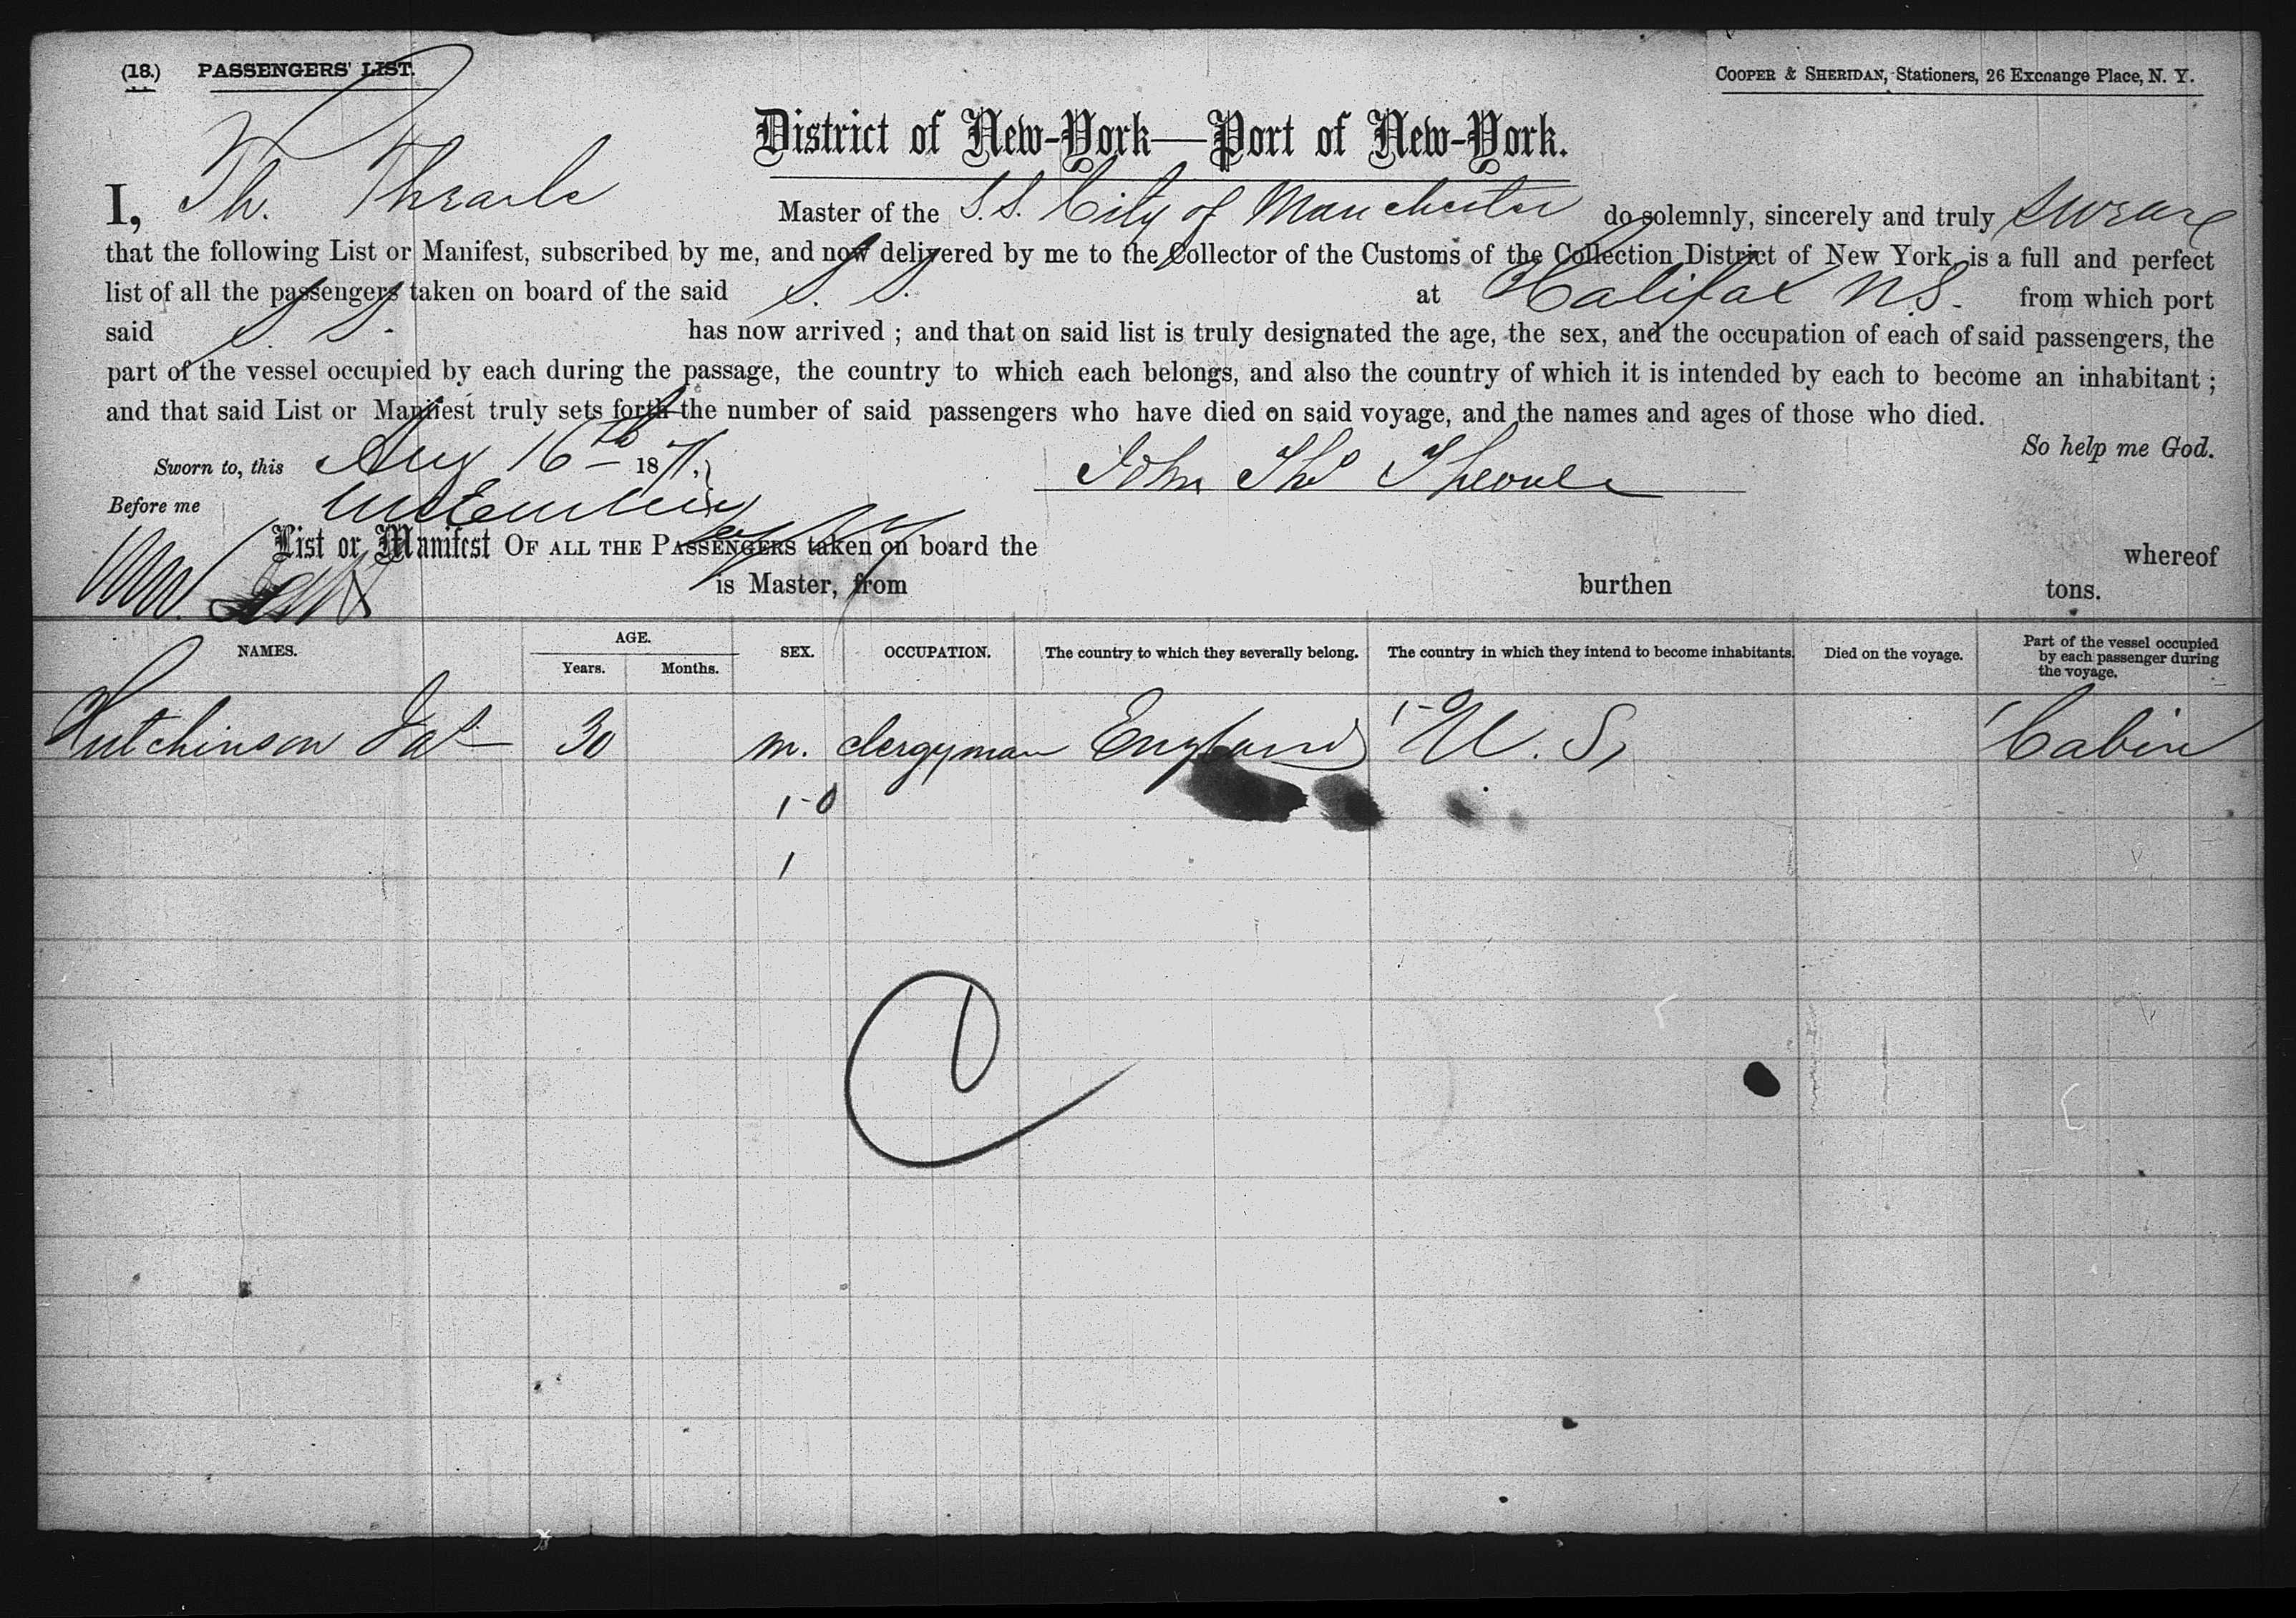 (18.) PASSENGERS' LIST.
COOPER & SHERIDAN, Stationers, 26 Exchange Place, N. Y.
District of New-York—Port of New-York.
I, Th. Master of the S.S. City of Manchester do solemnly, sincerely and truly swear
that the following List or Manifest, subscribed by me, and now delivered by me to the Collector of the Customs of the Collection District of New York, is a full and perfect
list of all the passengers taken on board of the said S. S. at Halifax N.S. from which port
said S. S. has now arrived ; and that on said list is truly designated the age, the sex, and the occupation of each of said passengers, the
part of the vessel occupied by each during the passage, the country to which each belongs, and also the country of which it is intended by each to become an inhabitant ;
and that said List or Manifest truly sets forth the number of said passengers who have died on said voyage, and the names and ages of those who died.
So help me God.
Sworn to, this Aug 16th 1871 John Thos
Before me
List or Manifest OF ALL THE PASSENGERS taken on board the whereof
is Master, from burthen tons.
NAMES. AGE. Years. Months. SEX. OCCUPATION. The country to which they severally belong. The country in which they intend to become inhabitants. Died on the voyage. Part of the vessel occupied by each passenger during the voyage.
Hutchinson Jas 30 m. clergyman England 1-0 U. S, Cabin
1-0
1